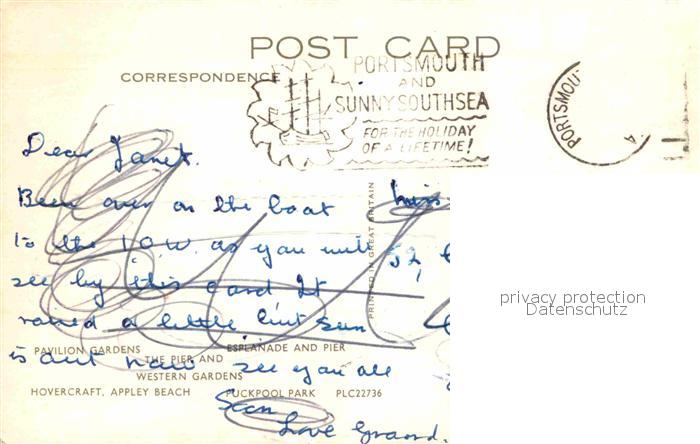 POST CARD
CORRESPONDENCE
PORTSMOUTH
AND
SUNNY SOUTHSEA
FOR THE HOLIDAY
OF A LIFETIME!
PORTSMOU
Dear Janet.
Been over on the boat
to the I.O.W. as you will
see by this card It
rained a little but sun
is out now see you all
Soon
Love Grand.
Miss
52,
PRINTED IN GREAT BRITAIN
PAVILION GARDENS
ESPLANADE AND PIER
THE PIER AND
WESTERN GARDENS
HOVERCRAFT, APPLEY BEACH
PUCKPOOL PARK
PLC22736
privacy protection
Datenschutz